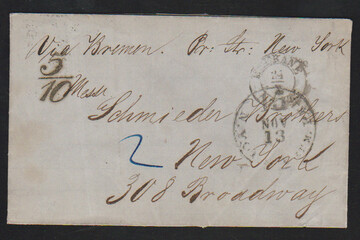 Via Bremen. Pr. Str. New York
5
10
Messr
Schmieder Brothers
2
New York
308 Broadway
NOV
13